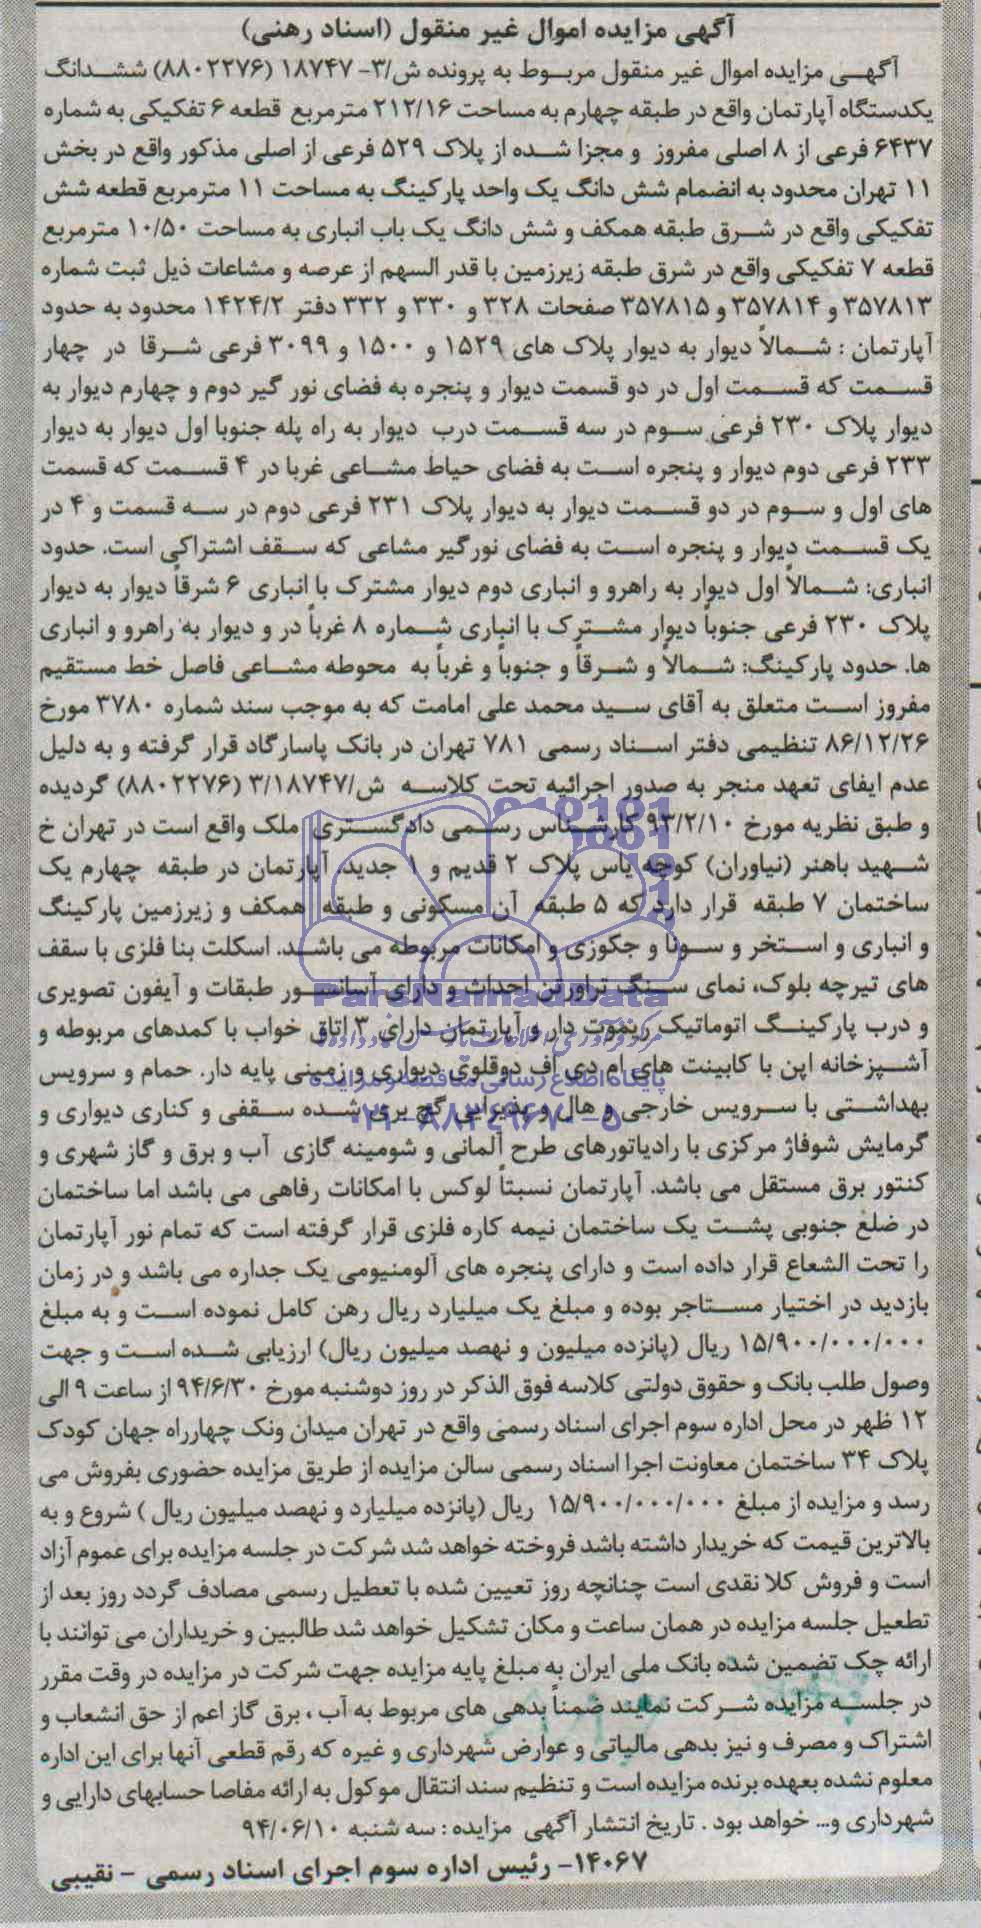 آگهی مزایده اموال غیر منقول (اسناد رهنی)
آگهـی مزایده اموال غیر منقول مربـوط به پرونده ش/۳- ۱۸۷۴۷ (۸۸۰۲۲۷۶) ششـدانگ
یکدستگاه آپارتمان واقع در طبقه چهارم به مساحت ۲۱۲/۱۶ مترمربع قطعه ۶ تفکیکی به شماره
۶۴۳۷ فرعی از ۸ اصلی مفروز و مجزا شده از پلاک ۵۲۹ فرعی از اصلی مذکور واقع در بخش
۱۱ تهران محدود به انضمام شش دانگ یک واحد پارکینگ به مساحت ۱۱ مترمربع قطعه شش
تفکیکی واقع در شـرق طبقه همکف و شش دانگ یک باب انباری به مساحت ۱۰/۵۰ مترمربع
قطعه ۷ تفکیکی واقع در شرق طبقه زیرزمین با قدر السهم از عرصه و مشاعات ذیل ثبت شماره
۳۵۷۸۱۳ و ۳۵۷۸۱۴ و ۳۵۷۸۱۵ صفحات ۳۲۸ و ۳۳۰ و ۳۳۲ دفتر ۱۴۲۴/۲ محدود به حدود
آپارتمان : شـمالاً دیوار به دیوار پلاک های ۱۵۲۹ و ۱۵۰۰ و ۳۰۹۹ فرعی شـرقا در چهار
قسـمت که قسـمت اول در دو قسمت دیوار و پنجره به فضای نور گیر دوم و چهارم دیوار به
دیوار پلاک ۲۳۰ فرعی سـوم در سه قسـمت درب دیوار به راه پله جنوبا اول دیوار به دیوار
۲۳۳ فرعی دوم دیوار و پنجره اسـت به فضای حیاط مشـاعی غربا در ۴ قسـمت که قسمت
های اول و سـوم در دو قسـمت دیوار به دیوار پلاک ۲۳۱ فرعی دوم در سـه قسمت و ۴ در
یک قسـمت دیوار و پنجره اسـت به فضای نورگیر مشاعی که سـقف اشتراکی است. حدود
انباری: شـمالاً اول دیوار به راهرو و انباری دوم دیوار مشترک با انباری ۶ شرقاً دیوار به دیوار
پلاک ۲۳۰ فرعی جنوباً دیوار مشـترک با انباری شـماره ۸ غرباً در و دیوار به راهرو و انباری
ها. حدود پارکینگ: شـمالاً و شـرقاً و جنوباً و غرباً به محوطه مشـاعی فاصل خط مستقیم
مفروز اسـت متعلق به آقای سـید محمد علی امامت که به موجب سند شماره ۳۷۸۰ مورخ
۸۶/۱۲/۲۶ تنظیمی دفتر اسـناد رسمی ۷۸۱ تهران در بانک پاسارگاد قرار گرفته و به دلیل
عدم ایفای تعهد منجر به صدور اجرائیه تحت کلاسـه ش/۳/۱۸۷۴۷ (۸۸۰۲۲۷۶) گردیده
و طبق نظریه مورخ ۹۳/۲/۱۰ کارشـناس رسـمی دادگسـتری ملک واقع است در تهران خ
شـهید باهنر (نیاوران) کوچه یاس پلاک ۲ قدیم و ۱ جدید. آپارتمان در طبقه چهارم یک
ساختمان ۷ طبقه قرار دارد که ۵ طبقه آن مسکونی و طبقه همکف و زیرزمین پارکینگ
و انباری و اسـتخر و سـونا و جکوزی و امکانات مربوطه می باشـد. اسکلت بنا فلزی با سقف
های تیرچه بلوک، نمای سـنگ تراورتن احداث و دارای آسانسـور طبقات و آیفون تصویری
و درب پارکینـگ اتوماتیک ریموت دار و آپارتمان دارای ۳ اتاق خواب با کمدهای مربوطه و
آشـپزخانه اپن با کابینت های ام دی اف دوقلوی دیواری و زمینی پایه دار. حمام و سرویس
بهداشـتی با سـرویس خارجی و هال و پذیرایی گچ بری شـده سـقفی و کناری دیواری و
گرمایش شوفاژ مرکزی با رادیاتورهای طرح آلمانی و شومینه گازی آب و برق و گاز شهری و
کنتور برق مستقل می باشد. آپارتمان نسبتاً لوکس با امکانات رفاهی می باشد اما ساختمان
در ضلع جنوبی پشـت یک ساختمان نیمه کاره فلزی قرار گرفته است که تمام نور آپارتمان
را تحت الشعاع قرار داده است و دارای پنجره های آلومنیومی یک جداره می باشد و در زمان
بازدید در اختیار مسـتاجر بوده و مبلغ یک میلیارد ریال رهن کامل نموده اسـت و به مبلغ
۱۵/۹۰۰/۰۰۰/۰۰۰ ریال (پانزده میلیون و نهصد میلیون ریال) ارزیابی شـده اسـت و جهت
وصول طلب بانک و حقوق دولتی کلاسه فوق الذکر در روز دوشنبه مورخ ۹۴/۶/۳۰ از ساعت ۹ الی
۱۲ ظهر در محل اداره سوم اجرای اسناد رسمی واقع در تهران میدان ونک چهارراه جهان کودک
پلاک ۳۴ ساختمان معاونت اجرا اسناد رسمی سالن مزایده از طریق مزایده حضوری بفروش می
رسد و مزایده از مبلغ ۱۵/۹۰۰/۰۰۰/۰۰۰ ریال (پانزده میلیارد و نهصد میلیون ریال ) شروع و به
بالاترین قیمت که خریدار داشته باشد فروخته خواهد شد شرکت در جلسه مزایده برای عموم آزاد
است و فروش کلا نقدی است چنانچه روز تعیین شده با تعطیل رسمی مصادف گردد روز بعد از
تطعیل جلسه مزایده در همان ساعت و مکان تشکیل خواهد شد طالبین و خریداران می توانند با
ارائه چک تضمین شده بانک ملی ایران به مبلغ پایه مزایده جهت شرکت در مزایده در وقت مقرر
در جلسـه مزایده شـرکت نمایند ضمناً بدهی های مربوط به آب ، برق گاز اعم از حق انشعاب و
اشتراک و مصرف و نیز بدهی مالیاتی و عوارض شهرداری و غیره که رقم قطعی آنها برای این اداره
معلوم نشده بعهده برنده مزایده است و تنظیم سند انتقال موکول به ارائه مفاصا حسابهای دارایی و
شهرداری و... خواهد بود . تاریخ انتشار آگهی مزایده : سه شنبه ۹۴/۰۶/۱۰
۱۴۰۶۷- رئیس اداره سوم اجرای اسناد رسمی - نقیبی
ParsNamadData
پایگاه اطلاع رسانی مناقصه و مزایده
۰۲۱-۸۸۳۴۹۶۷۰-۵